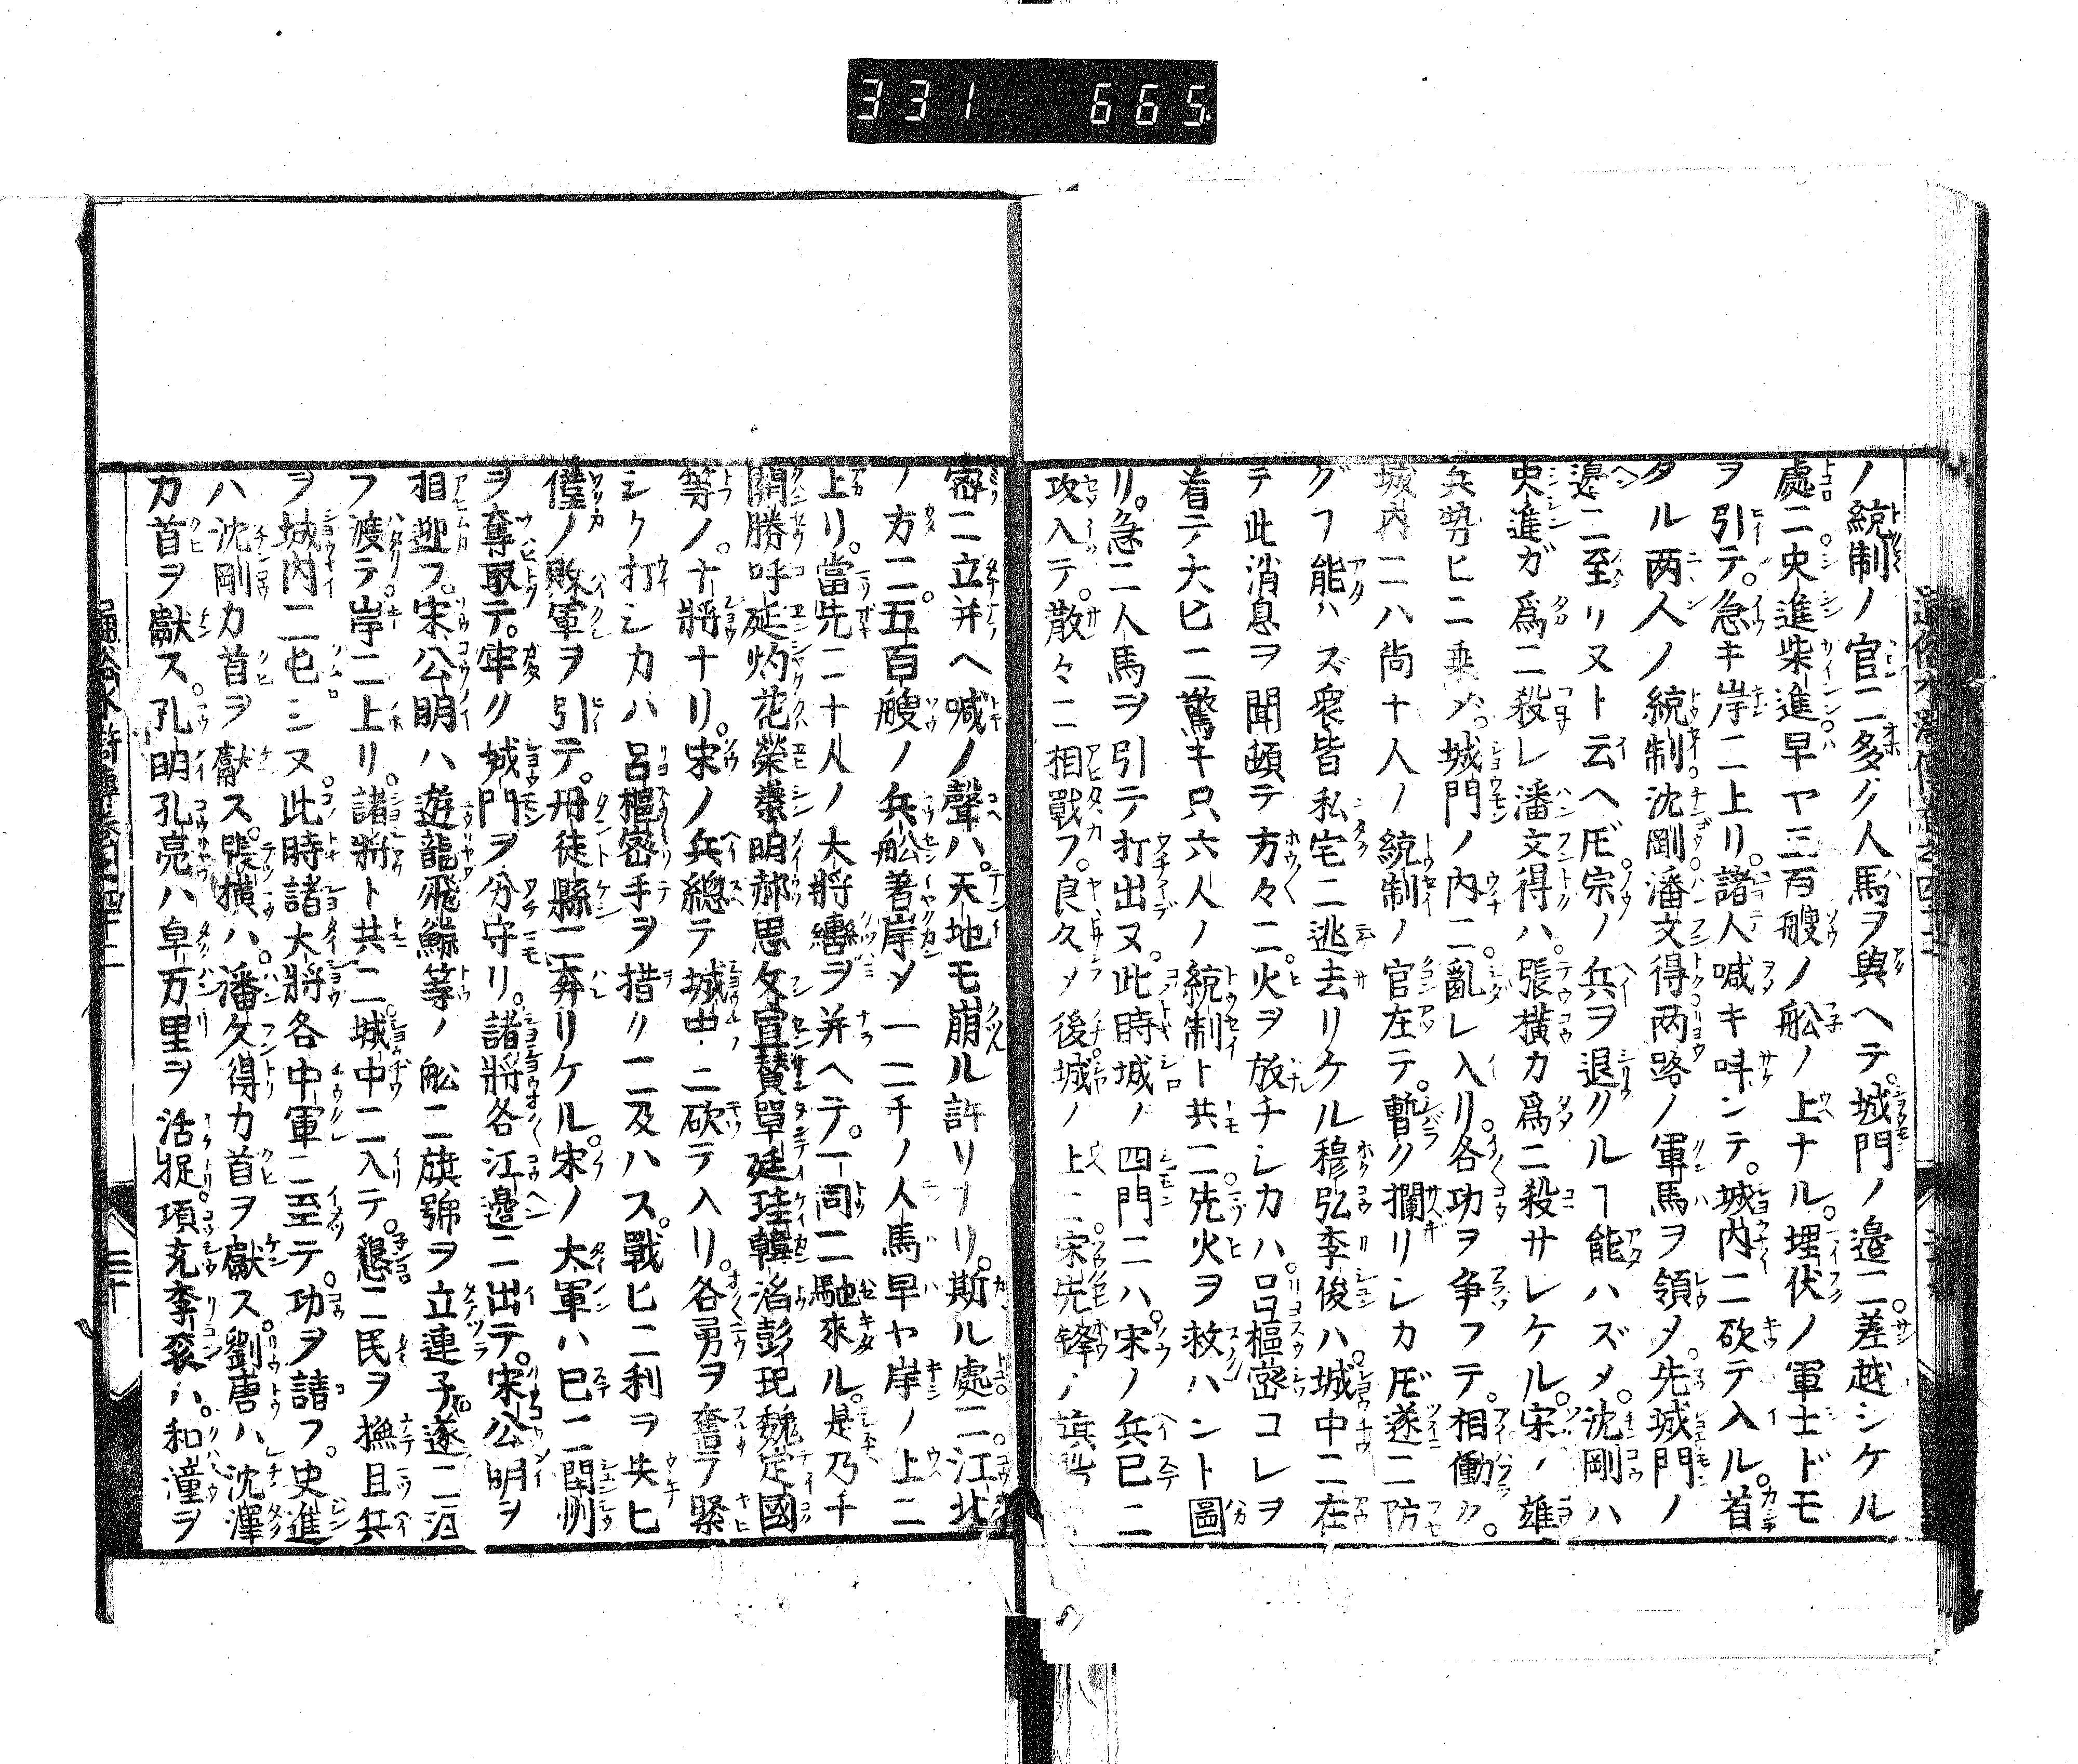 331 665
ノ統制ノ官ニ多ク人馬ヲ與ヘテ。城門ノ邉ニ。差越シケル
處ニ。史進柴進早ヤ三百艘ノ舩ノ上ナル。埋伏ノ軍士ドモ
ヲ引テ。急キ岸ニ上リ。諸人喊キ呌ンテ。城内ニ砍テ入ル。首
タル两人ノ統制沈剛潘文得两路ノ軍馬ヲ領メ。先城門ノ
邉ニ至リヌト云ヘ𪜈。宗ノ兵ヲ退クルヿ能ハズメ。沈剛ハ
史進ガ爲ニ殺レ潘文得ハ。張横カ爲ニ殺サレケル。宋ノ雄
兵勢ヒニ乗メ。城門ノ内ニ。亂レ入リ。各功ヲ争フテ。相働ク。
城内ニハ尚十人ノ統制ノ官在テ。暫ク攔リシカ𪜈遂ニ防
グフ能ハズ衆皆私宅ニ逃去リケル穆弘李俊ハ。城中ニ在
テ此消息ヲ聞頓テ方々ニ。火ヲ放チシカハ。呂樞宻コレヲ
着テ大ヒニ驚キ只六人ノ統制ト共ニ。先火ヲ救ハント圖
リ。急ニ人馬ヲ引テ打出ヌ。此時城ノ四門ニハ。宋ノ兵已ニ
攻入テ。散々ニ相戰フ。良久メ後城ノ上ニ。宋先鋒ノ旗
宻ニ立并ヘ喊ノ聲ハ。天地モ崩ル許リナリ。斯ル處ニ。江北
ノ方ニ。五百艘ノ兵舩著岸メ一二千ノ人馬早ヤ岸ノ上ニ
上リ。當先ニ十人ノ大將轡ヲ并ヘテ。一同ニ馳來ル。是乃チ
關勝呼延灼花榮秦明郝思文宣賛單廷珪韓滔彭玘魏定國
等ノ。十將ナリ。宋ノ兵總テ城中ニ砍テ入リ。各勇ヲ奮フ緊
シク打シカハ呂樞宻手ヲ措クニ及ハス。戰ヒニ利ヲ失ヒ
僅ノ敗軍ヲ引テ。丹徒縣ニ奔リケル。宋ノ大軍ハ已ニ閏州
ヲ奪取テ。牢ク城門ヲ分守リ。諸將各江邉ニ出テ。宋公明ヲ
相迎フ。宋公明ハ遊龍飛鯨等ノ舩ニ旗號ヲ立連子。遂ニ江
フ渡テ。岸ニ上リ。諸將ト共ニ。城中ニ入テ。懇ニ民ヲ撫且兵
ヲ城内ニ屯シヌ。此時諸大將各中軍ニ至テ。功ヲ請フ。史進
ハ沈剛カ首ヲ獻ス。張横ハ。潘文得カ首ヲ獻ス。劉唐ハ沈澤
カ首ヲ獻ス。孔明孔亮ハ卓万里ヲ活捉項充李袞ハ。和潼ヲ